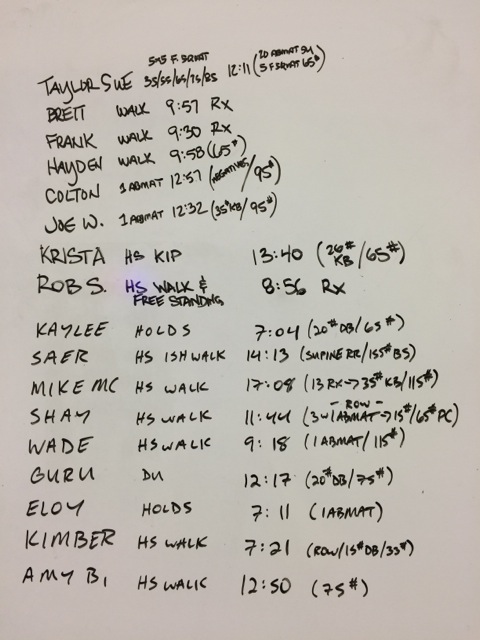 5x5 F. SQUAT
TAYLOR SWE 35/55/65/75/85 12:11 (20 ABMAT SU
5 F SQUAT 65#)
BRETT WALK 9:57 RX
FRANK WALK 9:30 RX
HAYDEN WALK 9:58 (65#)
COLTON 1 ABMAT 12:57 (NEGATIVES/95#)
JOE W. 1 ABMAT 12:32 (35#KB/95#)
KRISTA HS KIP 13:40 (26# KB/65#)
ROB S. HS WALK & FREE STANDING 8:56 RX
KAYLEE HOLDS 7:04 (20#DB/65#)
SAER HS ISH WALK 14:13 (SUPINE RR/155#BS)
MIKE MC HS WALK 17:08 (13 RX → 35#KB/115#)
- ROW -
SHAY HS WALK 11:44 (3 1 ABMAT → 15#/65# PC)
WADE HS WALK 9:18 (1 ABMAT/115#)
GURU DU 12:17 (20#DB/75#)
ELOY HOLDS 7:11 (1 ABMAT)
KIMBER HS WALK 7:21 (ROW/15#DB/33#)
AMY B. HS WALK 12:50 (75#)